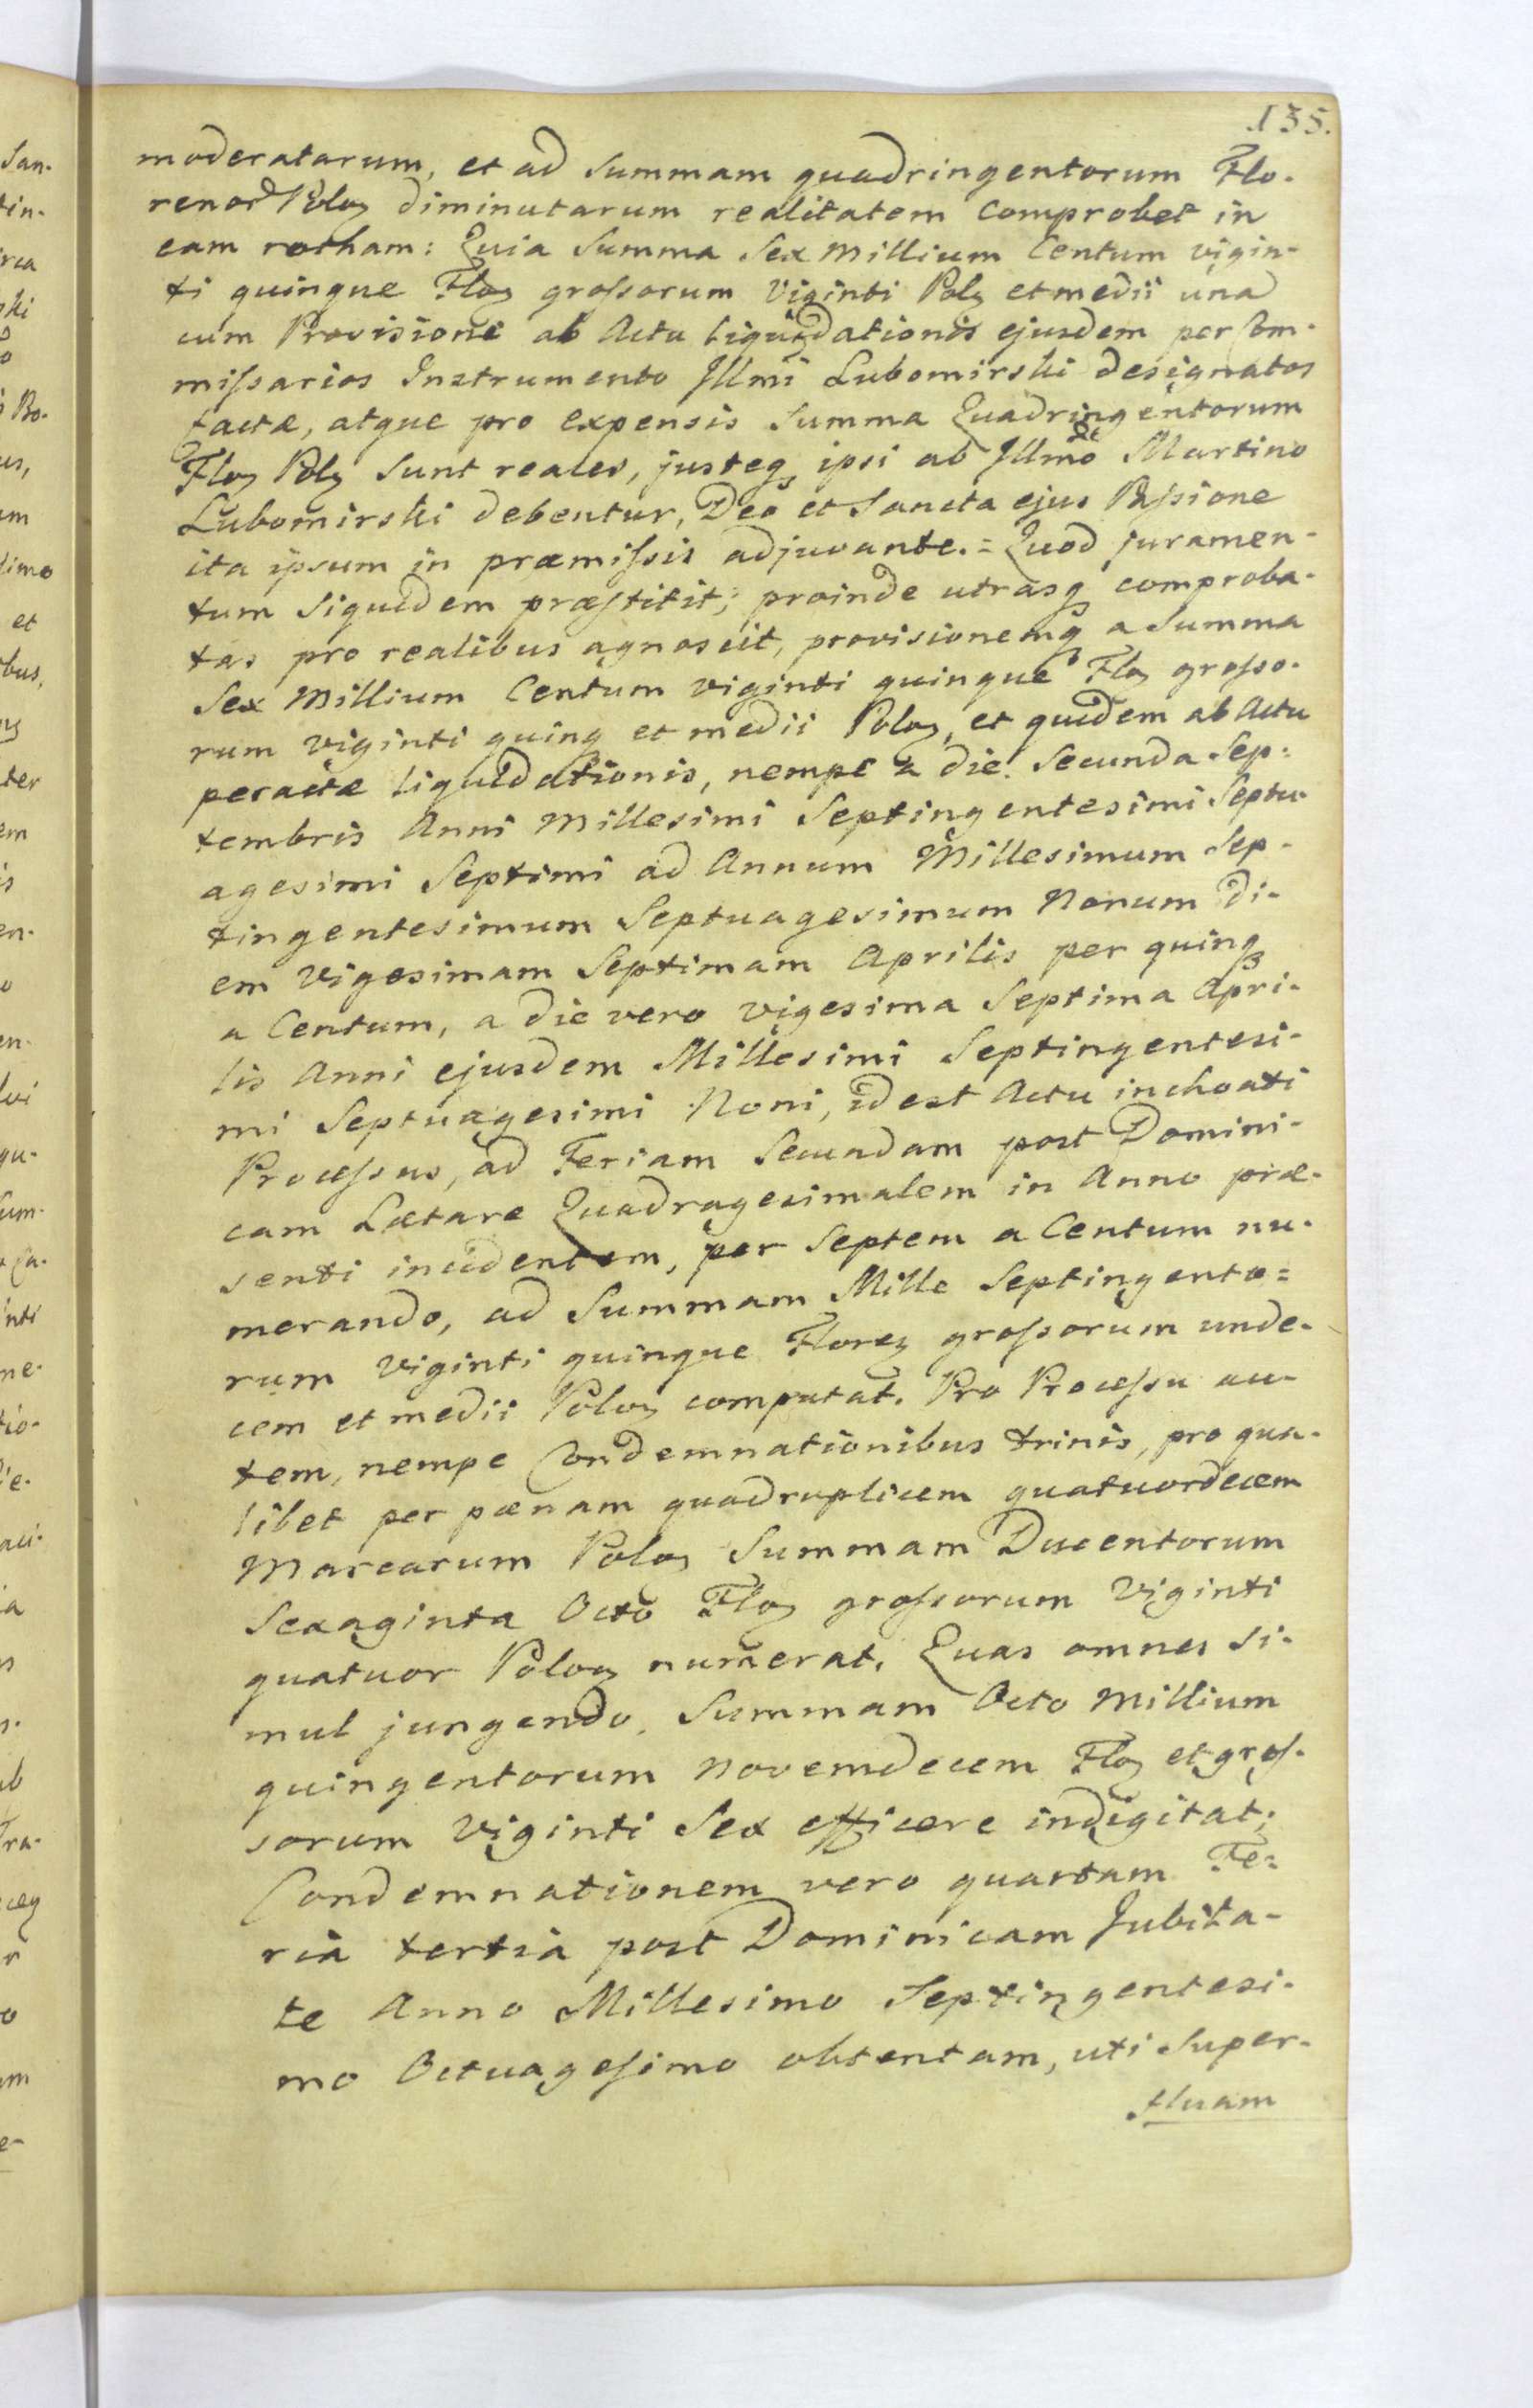 135.
moderatarum, et ad Summam quadringentorum Flo-
renorꝝ Poloꝝ diminutarum realitatem comprobet in
eam rotham: Quia Summa Sex Millium Centum vigin-
ti quinque Floꝝ groſsorum Viginti Polꝝ et medii una
cum Provisione ab Actu liquidationis ejusdem per Com-
miſsarios Instrumento Illmi Lubomirski designatos
factæ, atque pro expensis Summa Quadringentorum
Floꝝ Polꝝ Sunt reales, justeqꝫ ipsi ab Illmo Martino
Lubomirski debentur, Deo et Sancta ejus Paſsione
ita ipsum in præmiſsis adjuvante. = Quod juramen-
tum Siquidem præſtitit; proinde utrasqꝫ comproba-
tas pro realibus agnoscit, provisionemqꝫ a Summa
Sex Millium Centum Viginti quinque Floꝝ groſso-
rum viginti quinqꝫ et medii Poloꝝ, et quidem ab Actu
peractæ liquidationis, nempe a die Secunda Sep-
tembris Anni Millesimi Septingentesimi Septu-
agesimi Septimi ad Annum Millesimum Sep-
tingentesimum Septuagesimum Nonum di-
em Vigesimam Septimam Aprilis per quinqꝫ
a Centum, a die vero vigesima Septima Apri-
lis Anni ejusdem Millesimi Septingentesi-
mi Septuagesimi Noni, id est Actu inchoati
Proceſsus, ad Feriam Secundam post Domini-
cam Lætare Quadragesimalem in Anno præ-
senti incidentem, per Septem a Centum nu-
merando, ad Summam Mille Septingento=
rum Viginti quinque Floreꝝ groſsorum unde-
cem et medii Poloꝝ computat. Pro Proceſsu au-
tem, nempe Condemnationibus trinis, pro qua-
libet per pœnam quadruplicem quatuordecem
Marcarum Poloꝝ Summam Ducentorum
Sexaginta Octo Floꝝ groſsorum Viginti
quatuor Poloꝝ numerat. Quas omnes si-
mul jungendo, Summam Octo Millium
quingentorum Novemdecem Floꝝ et groſ-
sorum Viginti Sex efficere indigitat;
Condemnationem vero quartam Fe=
ria tertia post Dominicam Jubila-
te Anno Millesimo Septingentesi-
mo Octuageſimo obtentam, uti Super-
fluam